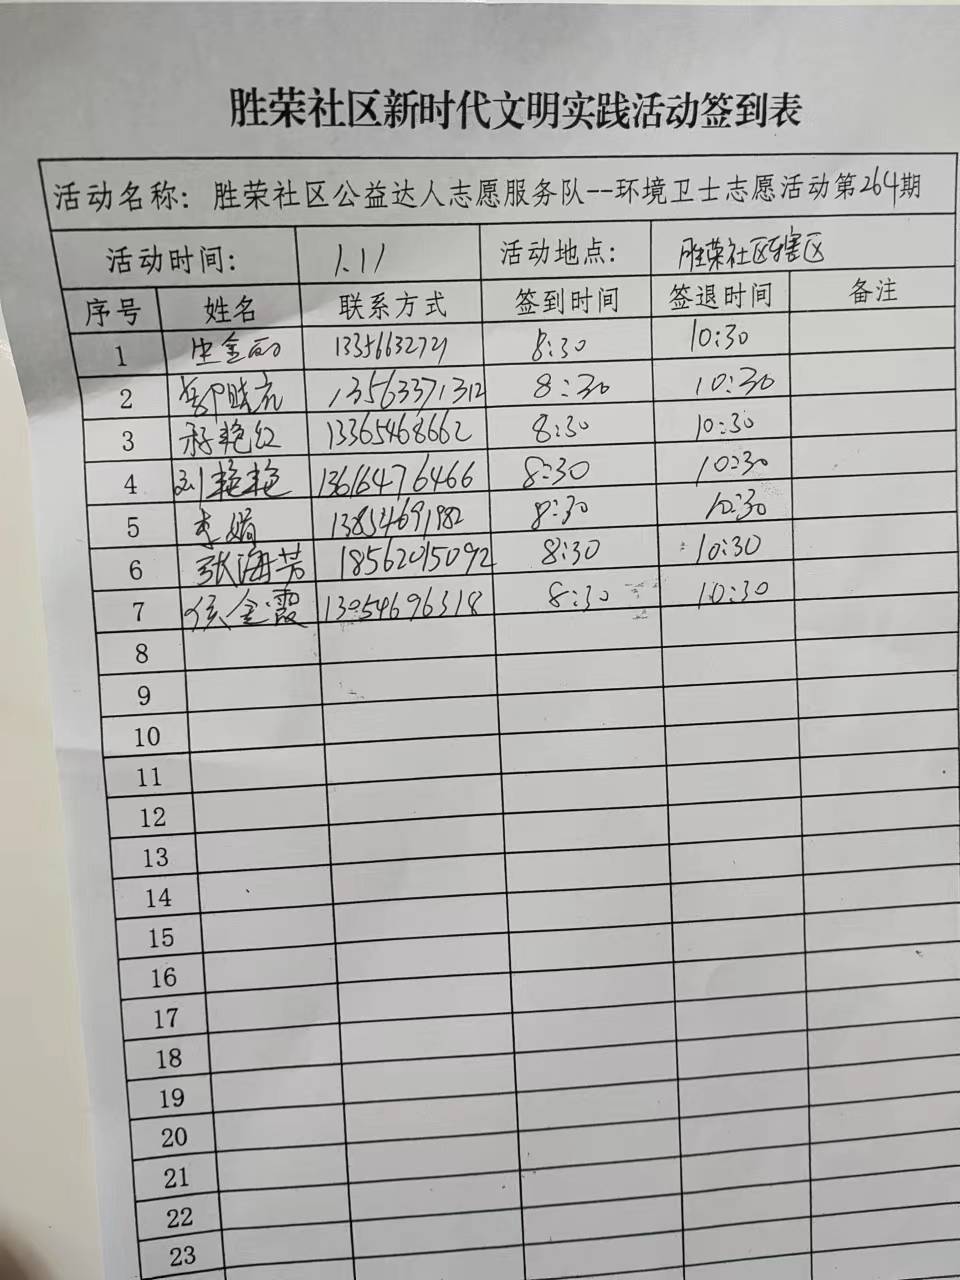 胜荣社区新时代文明实践活动签到表
活动名称：胜荣社区公益达人志愿服务队--环境卫士志愿活动第264期
活动时间： 1.11 活动地点： 胜荣社区辖区
序号 姓名 联系方式 签到时间 签退时间 备注
1 金丽 13356632721 8:30 10:30
2 13563371312 8:30 10:30
3 艳红 13365468662 8:30 10:30
4 刘艳艳 13616476466 8:30 10:30
5 李娟 13854691982 8:30 10:30
6 张海芳 18562015092 8:30 10:30
7 侯金霞 13054696318 8:30 10:30
8
9
10
11
12
13
14
15
16
17
18
19
20
21
22
23